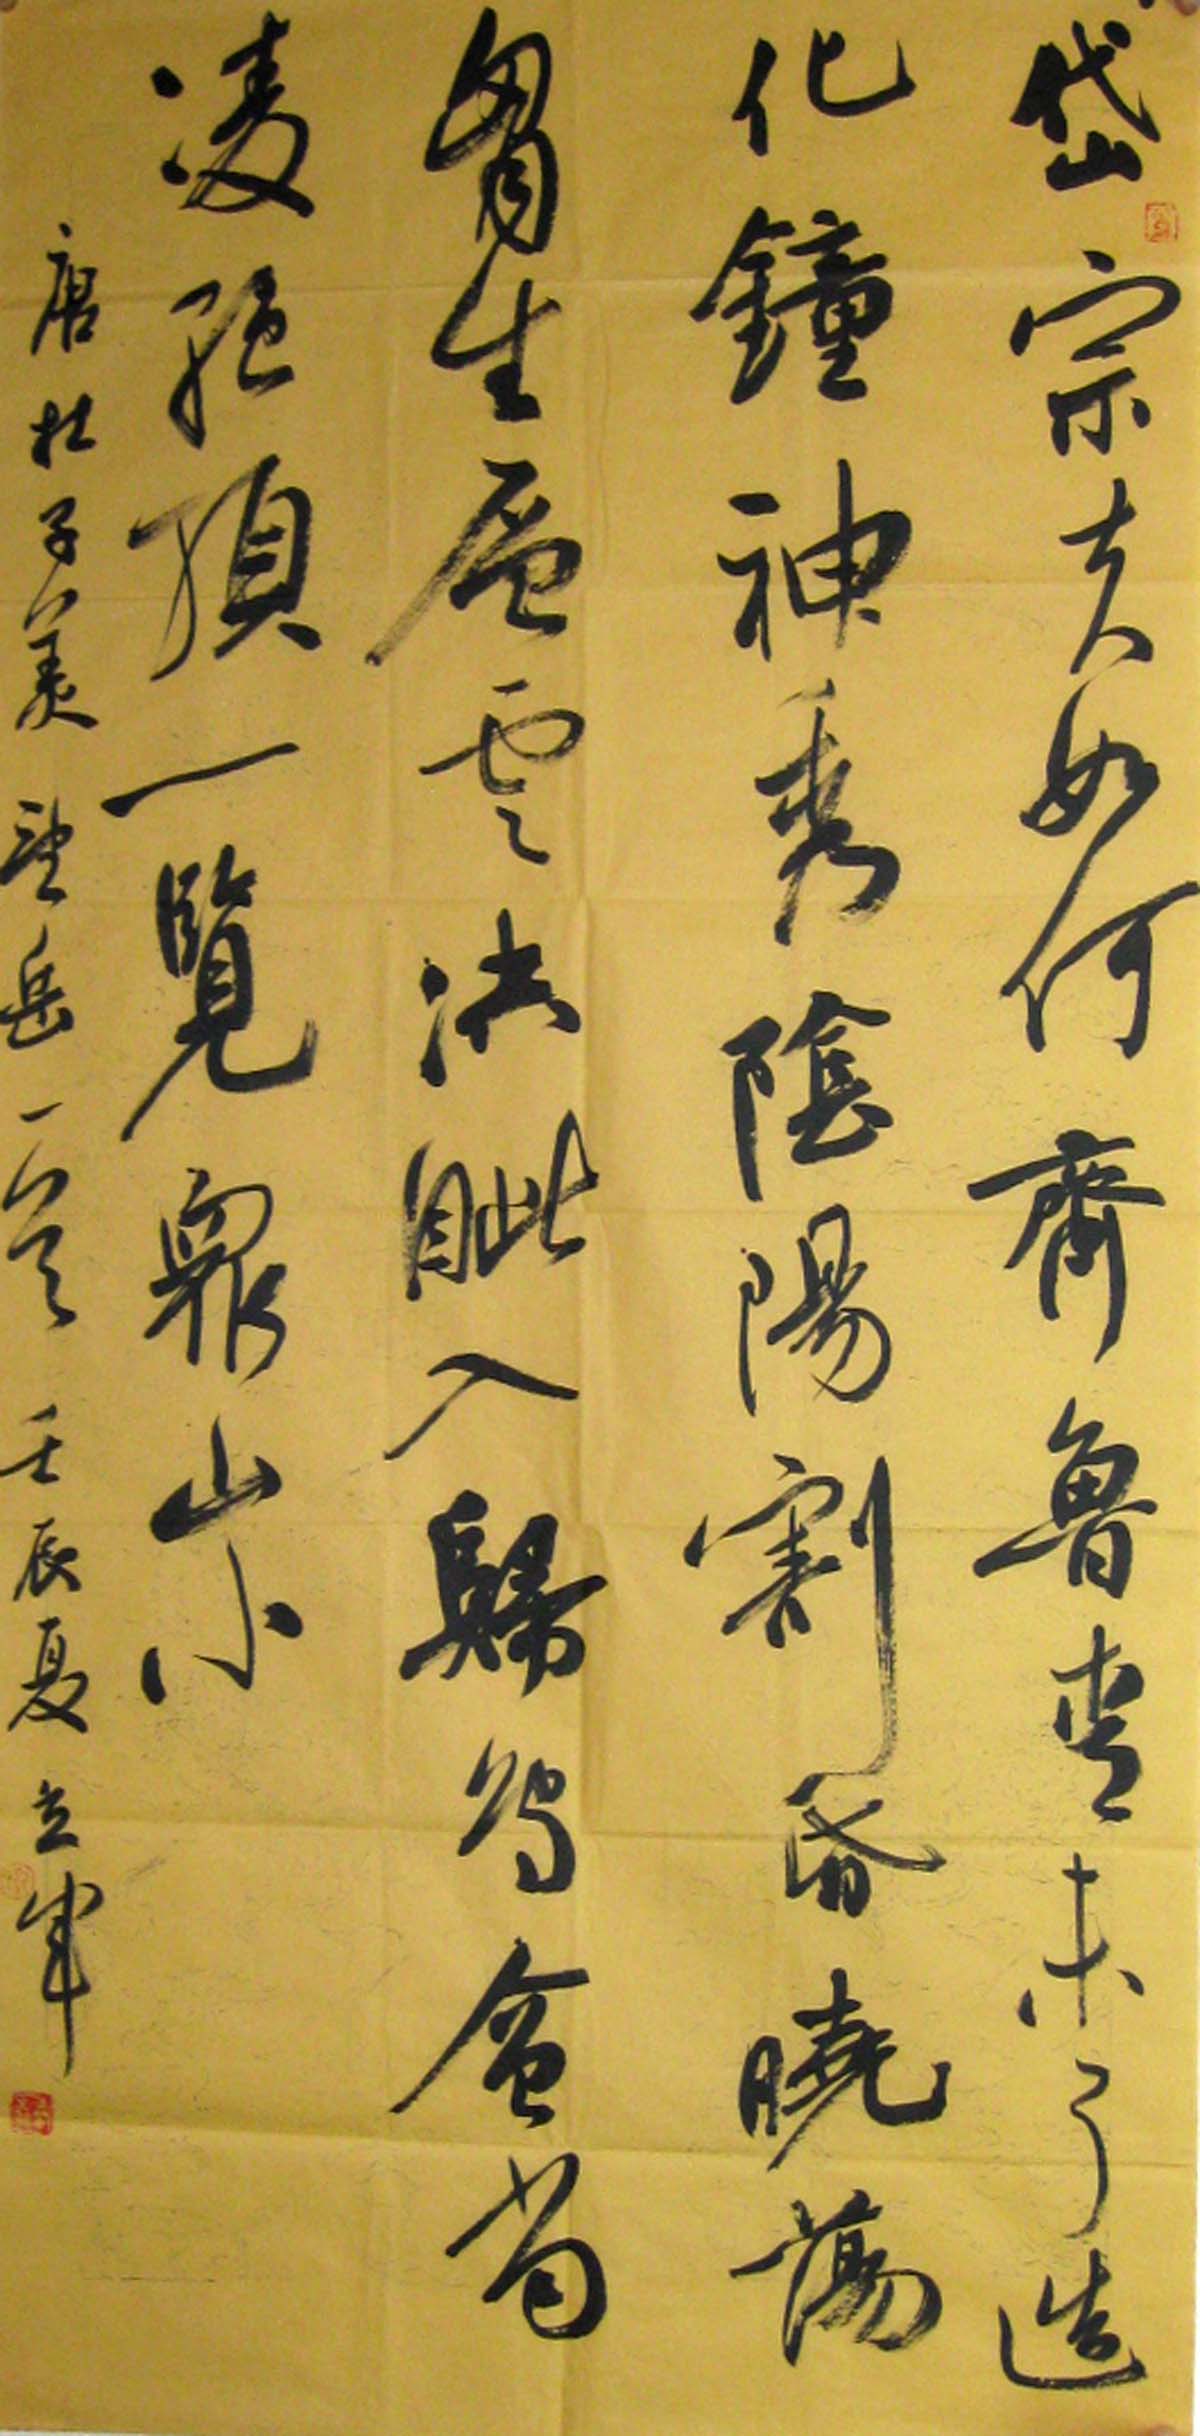 岱宗夫如何齊魯青未了造
化鐘神秀陰陽割昏曉蕩
胷生層雲决眦入歸鳥會當
凌絕頂一覽衆山小
唐杜子美望岳一首壬辰夏立軍